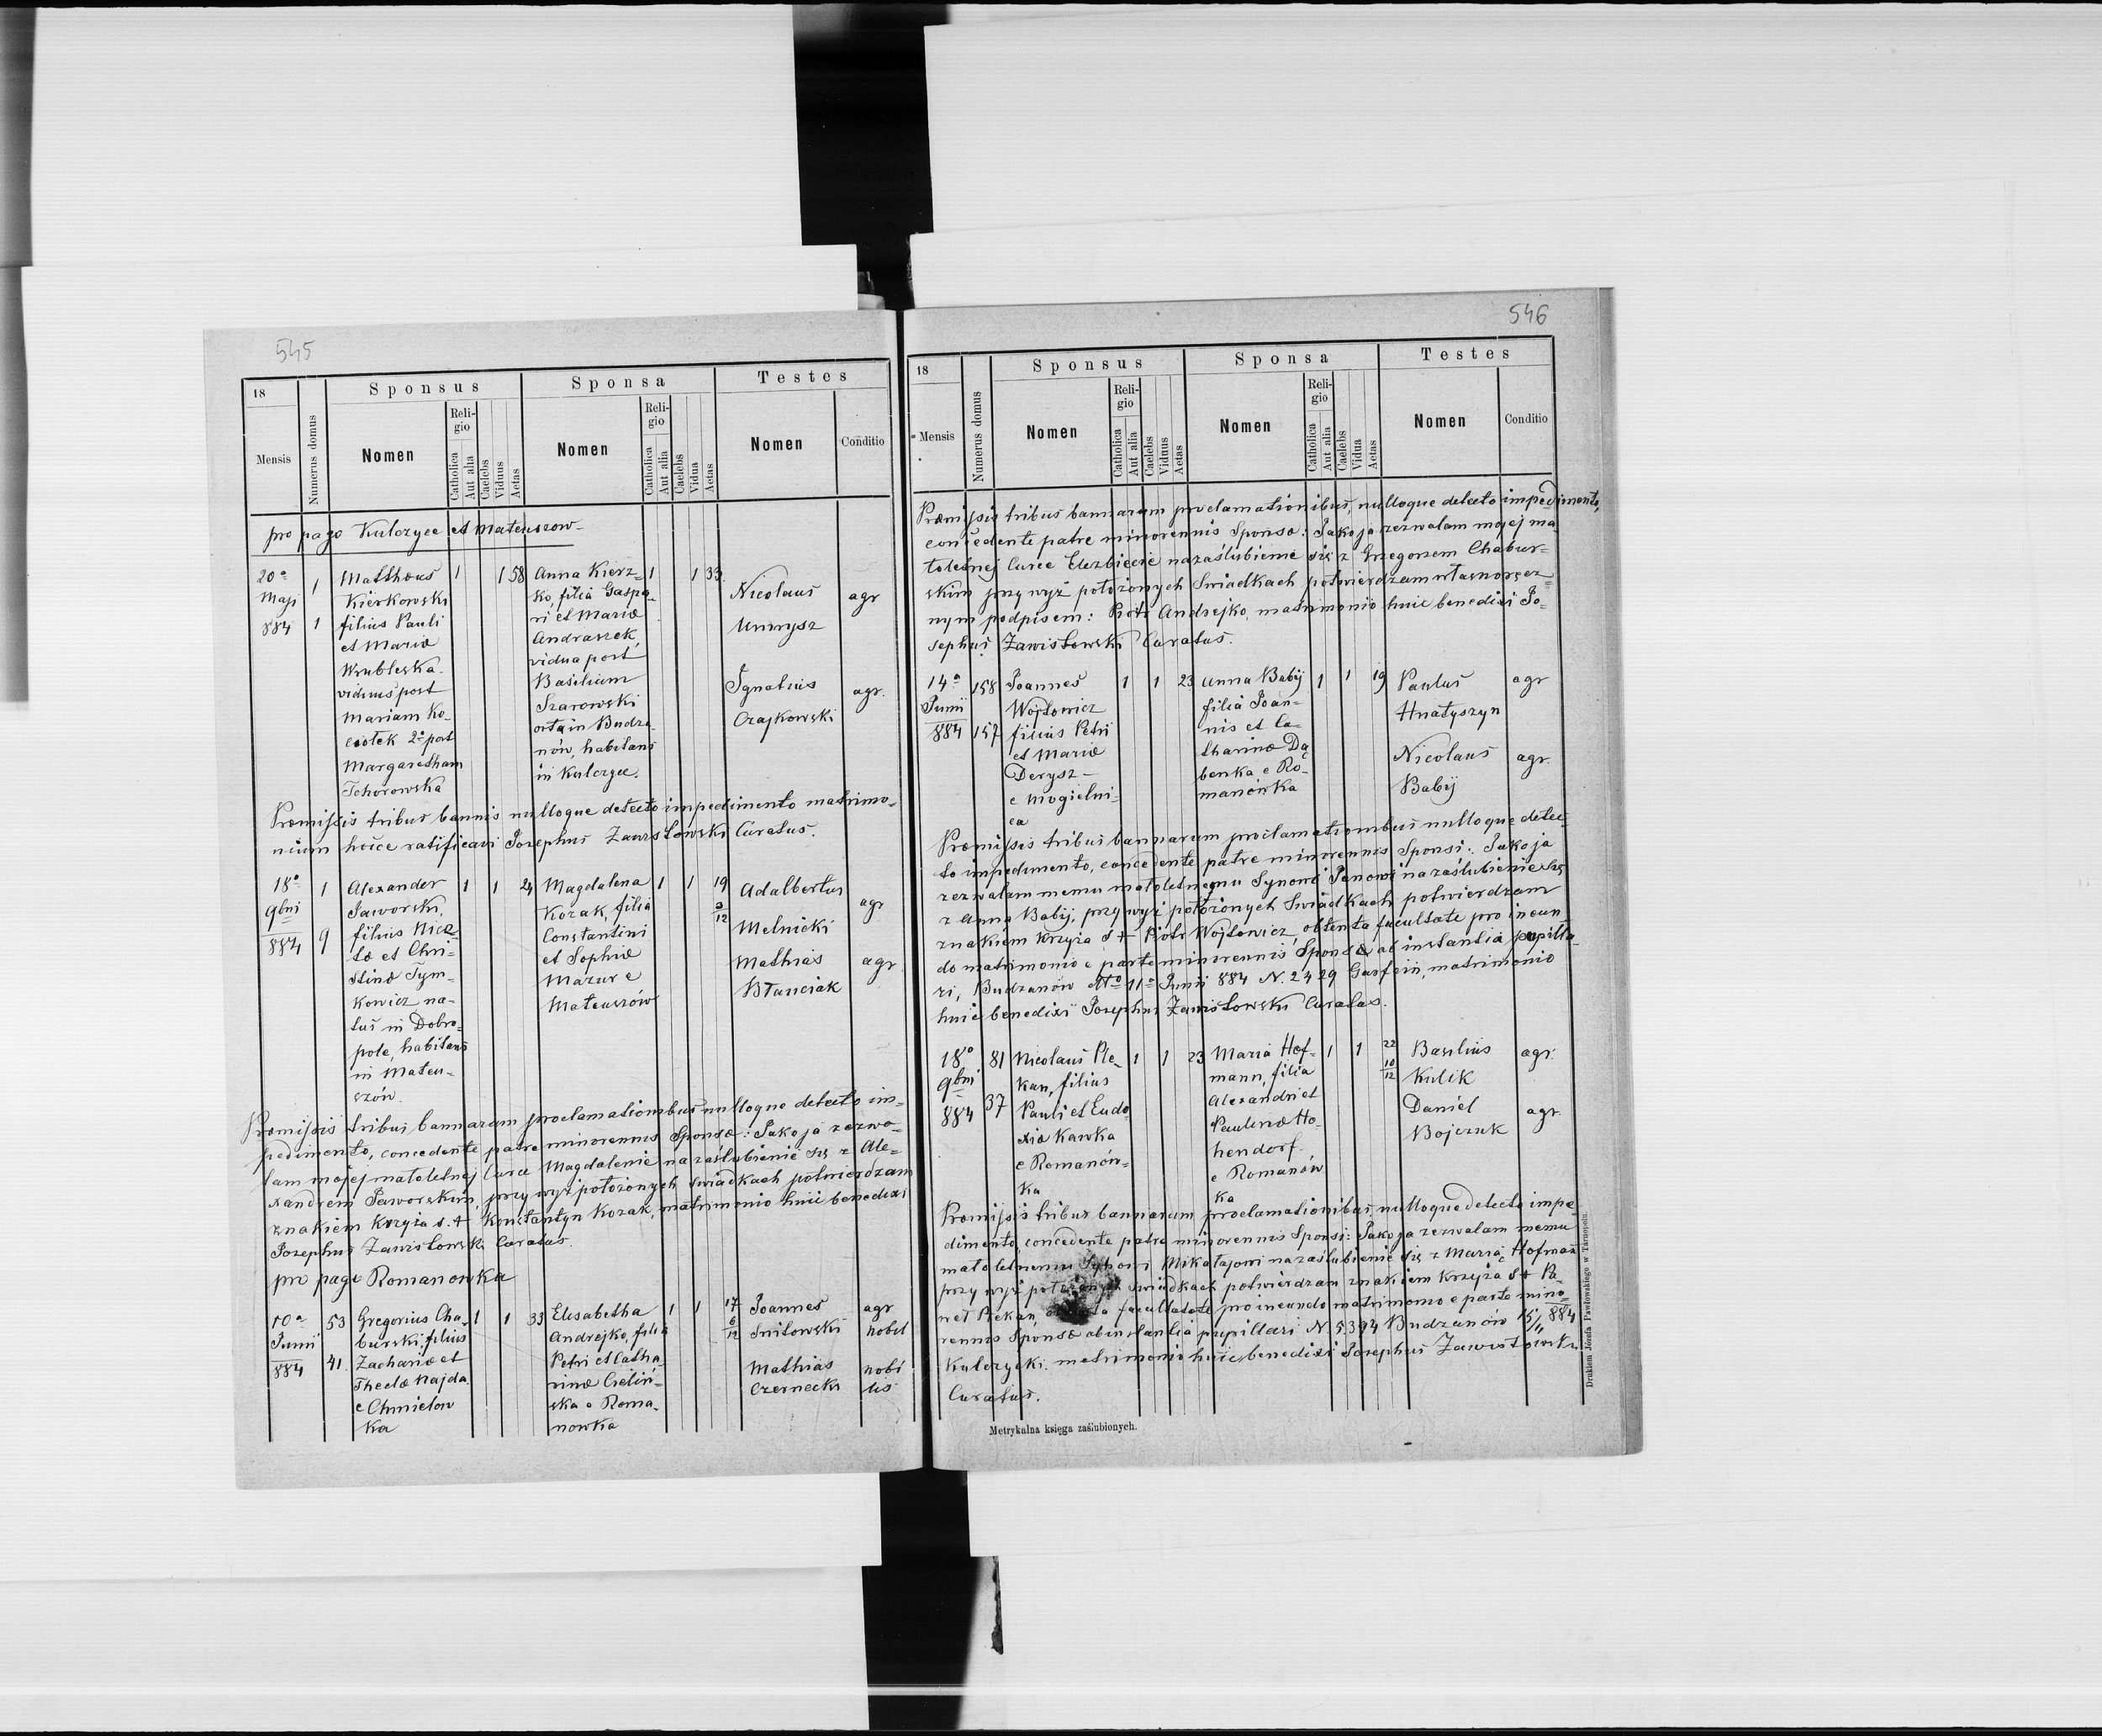 545
18
Sponsus
Sponsa
Testes
Mensis
Numerus domus
Nomen
Religio
Catholica
Aut alia
Caelebs
Viduus
Aetas
Nomen
Religio
Catholica
Aut alia
Caelebs
Vidua
Aetas
Nomen
Conditio
pro pago Kulczyce et Mateuszow
20a
Maji
884
1
1
Matthæus
Kierkowski
filius Pauli
et Mariæ
Wrubleska
viduus post
Mariam Ko-
ciołek 2o post
Margaretham
Tchorowska
1
1
58
Anna Kierz-
ko, filia Gaspa-
ri et Mariæ
Andraszek,
vidua post
Basilium
Szarowski
orta in Budza-
nów, habitans
in Kulczyce.
1
1
33
Nicolaus
agr
Ignatius
agr.
Czajkowski
Præmissis tribus bannis nulloque detecto impedimento matrimo-
nium hocce ratificavi Josephus Zawisłowski Curatus.
18a
9bri
884
1
9
Alexander
Jaworski,
filius Nico-
læ et Chri-
stinæ Tym-
kowicz na-
tus in Dobro-
pole, habitans
in Mateu-
szów.
1
1
24
Magdalena
Kozak, filia
Constantini
et Sophiæ
Mazur e
Mateuszów
1
1
19
2/12
Adalbertus
Melnicki
agr
Mathias
Błanciak
agr
Præmissis tribus bannarum proclamationibus nulloque detecto im-
pedimento, concedente patre minorennis Sponsæ: Jako ja zezwa-
lam mojej małoletnej Curce Magdalenie na zaślubienie się z Ale-
xandrem Jaworskim, przy wyż położonych świadkach potwierdzam
znakiem Krzyża s. + Konstantyn Kozak, matrimonio huic benedixi
Josephus Zawisłowski Curatus.
pro pago Romanowka
10a
Junii
884
53
41.
Gregorius Cha-
burski, filius
Zachariæ et
Theclæ Najda
e Chmielow
ka
1
1
33
Elisabetha
Andrejko, filia
Petri et Catha-
rinæ Cieliń-
ska e Roma-
nowka
1
1
17
6/12
Joannes
Snilowski
agr
nobil
Mathias
Czernecki
nobi
lis
546
18
Sponsus
Sponsa
Testes
Mensis
Numerus domus
Nomen
Religio
Catholica
Aut alia
Caelebs
Viduus
Aetas
Nomen
Religio
Catholica
Aut alia
Caelebs
Vidua
Aetas
Nomen
Conditio
Præmissis tribus bannarum proclamationibus, nulloque detecto impedimento,
concedente patre minorennis Sponsæ: Jako ja zezwalam mojej ma-
łoletnej Curce Elezbiecie na zaślubienie się z Grzegorzem Chabur-
skim przy wyż położonych Swiadkach potwierdzam własnoręcz-
nym podpisem: Piotr Andrejko, matrimonio huic benedixi Jo-
sephus Zawisłowski Curatus.
14a
Junii
884
158
157
Joannes
Wojtowicz
filius Petri
et Mariæ
Derysz
e Mogielni-
ca
1
1
23
Anna Babij
filia Joan-
nis et Ca-
tharinæ Dą-
benka e Ro-
manówka
1
1
19
Paulus
Hnatyszyn
agr
Nicolaus
Babij
agr.
Præmissis tribus bannarum proclamationibus nulloque detec-
to impedimento, concedente patre minorennis Sponsi: Jako ja
zezwalam memu małoletnemu Synowi Janowi na zaślubienie się
z Anną Babij, przy wyż położonych Swiadkach potwierdzam
znakiem Krzyża ś + Piotr Wojtowicz, obtenta facultate pro ineun-
do matrimonio e parte minorennis Sponsæ ab instantia pupilla-
ri, Budzanów dto 11a Junii 884 N. 2429 matrimonio
huic benedixi Josephus Zawisłowski Curatus.
18a
9bri
884
81
37
Nicolaus Ple-
kan, filius
Pauli et Eudo-
xiæ Kawka
e Romanów-
ka
1
1
23
Maria Hof-
mann, filia
Alexandri et
Paulinæ Ho-
hendorf.
e Romanów
ka
1
1
22
10/12
Basilius
Kulik
agr.
Daniel
Bojczuk
agr.
Præmissis tribus bannarum proclamationibus nulloque detecto impe-
dimento, concedente patre minorennis Sponsi: Jako ja zezwalam memu
małoletniemu Synowi Mikołajowi na zaślubienie się z Marią Hofman
przy wyż położonych świadkach potwierdzam znakiem Krzyża ś + Pa-
weł Plekan, obtenta facultate pro ineundo matrimonio e parte mino-
rennis Sponsæ ab instantia pupillari N. 5394 Budzanów 15/11 884
Kulczycki. matrimonio huic benedixi Josephus Zawisłowski
Curatus.
Metrykalna księga zaślubionych.
Drukiem Józefa Pawłowskiego w Tarnopolu.